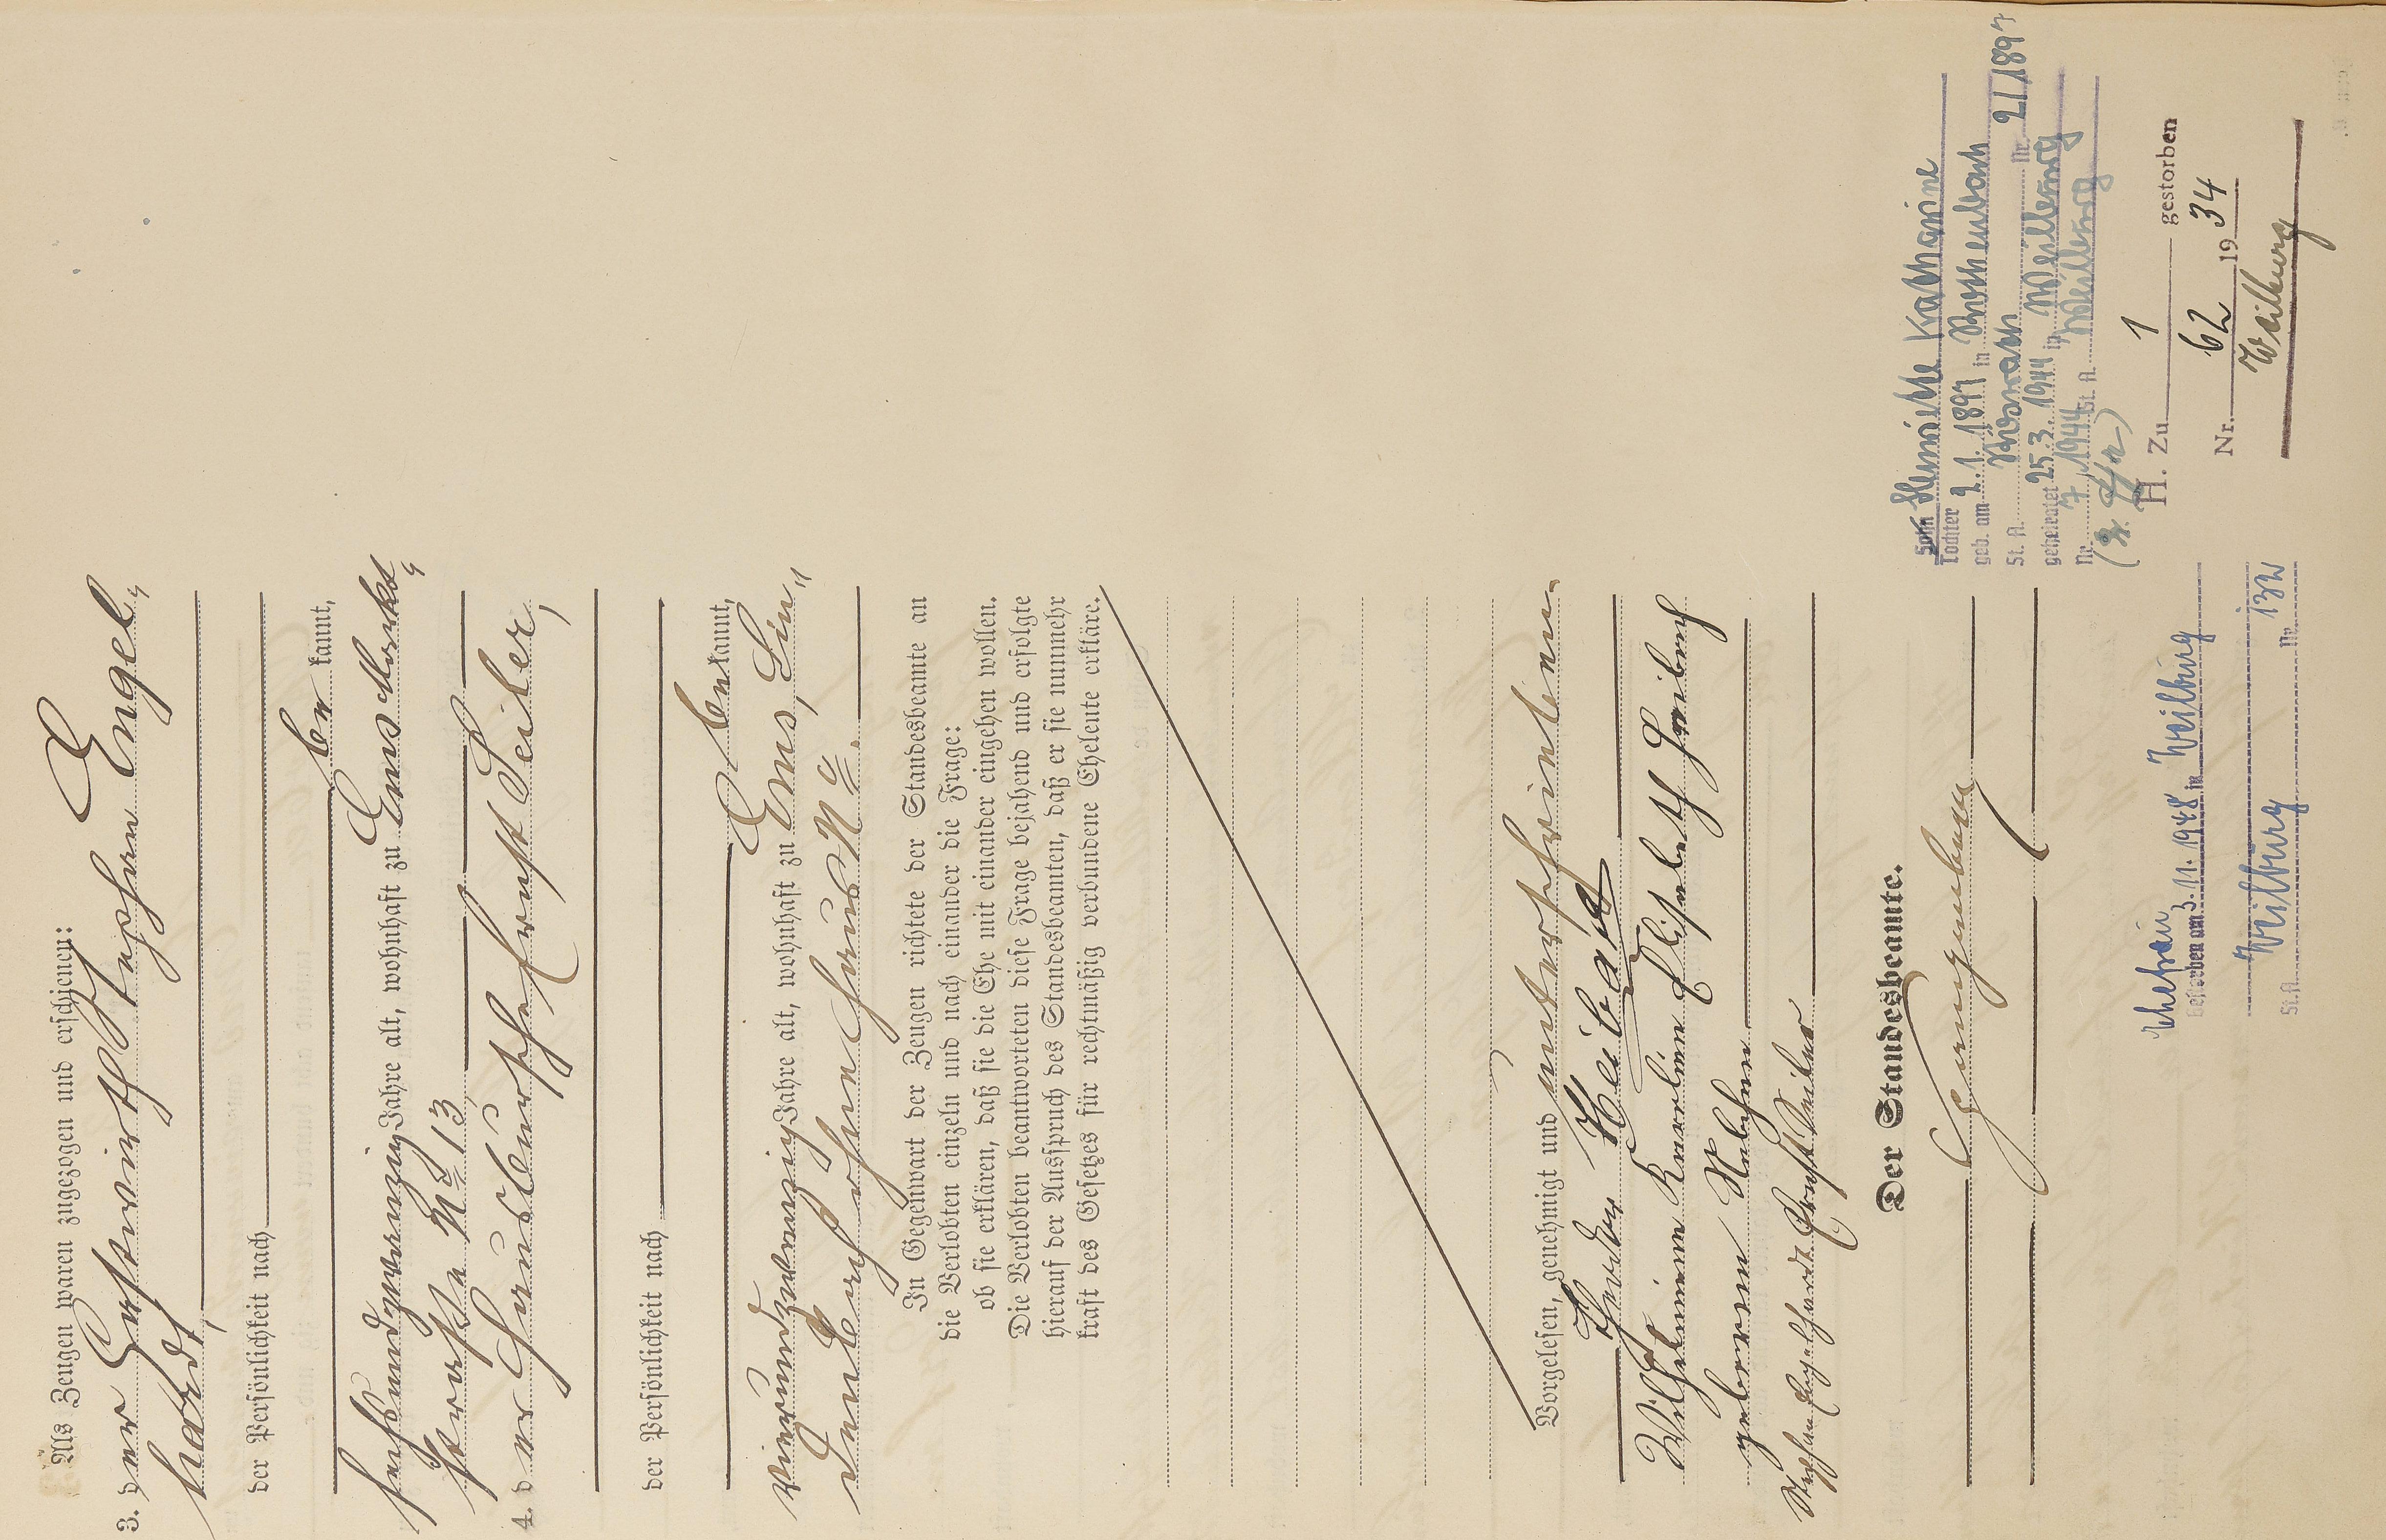 Als Zeugen waren zugezogen und erschienen:
3. der Gastwirth Stephan Engel-
hardt,
der Persönlichkeit nach
be kannt,
sechsundzwanzig Jahre alt, wohnhaft zu Ems, Markt-
straße No 13,
4. der Hausbursche Ernst Seiler,
der Persönlichkeit nach
be kannt,
vierundzwanzig Jahre alt, wohnhaft zu Ems, Lin-
denbach
In Gegenwart der Zeugen richtete der Standesbeamte an
die Verlobten einzeln und nach einander die Frage:
ob sie erklären, daß sie die Ehe mit einander eingehen wollen.
Die Verlobten beantworteten diese Frage bejahend und erfolgte
hierauf der Ausspruch des Standesbeamten, daß er sie nunmehr
kraft des Gesetzes für rechtmäßig verbundene Eheleute erkläre.
Vorgelesen, genehmigt und unterschrieben.
Theodor Heibach
Wilhelmine Karoline Elisabeth Heibach
geborene
Stephan Engelhardt Ernst Seiler
Der Standesbeamte.
Ehefrau
Gestorben am 3. 11. 1948 in Weilburg
St.A. Weilburg Nr. 132
Sohn
Tochter Henriette Katharine
geb. am 2. 1. 1897 in
St. A. Nr. 2/1897
geheiratet 25. 3. 1944 in Weilburg
Nr. 7/1944 St. A. Weilburg
H. Zu 1 gestorben
Nr. 62 1934
Weilburg